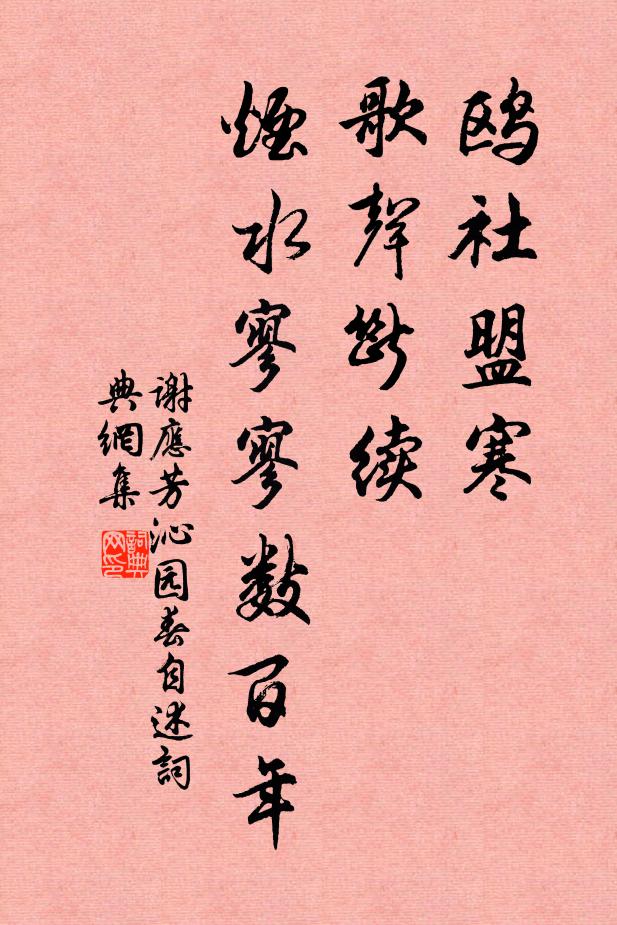 鸥社盟寒
歌声断续
烟水寥寥数百年
謝應芳沁园春自述詞
典網集
詞典
网印